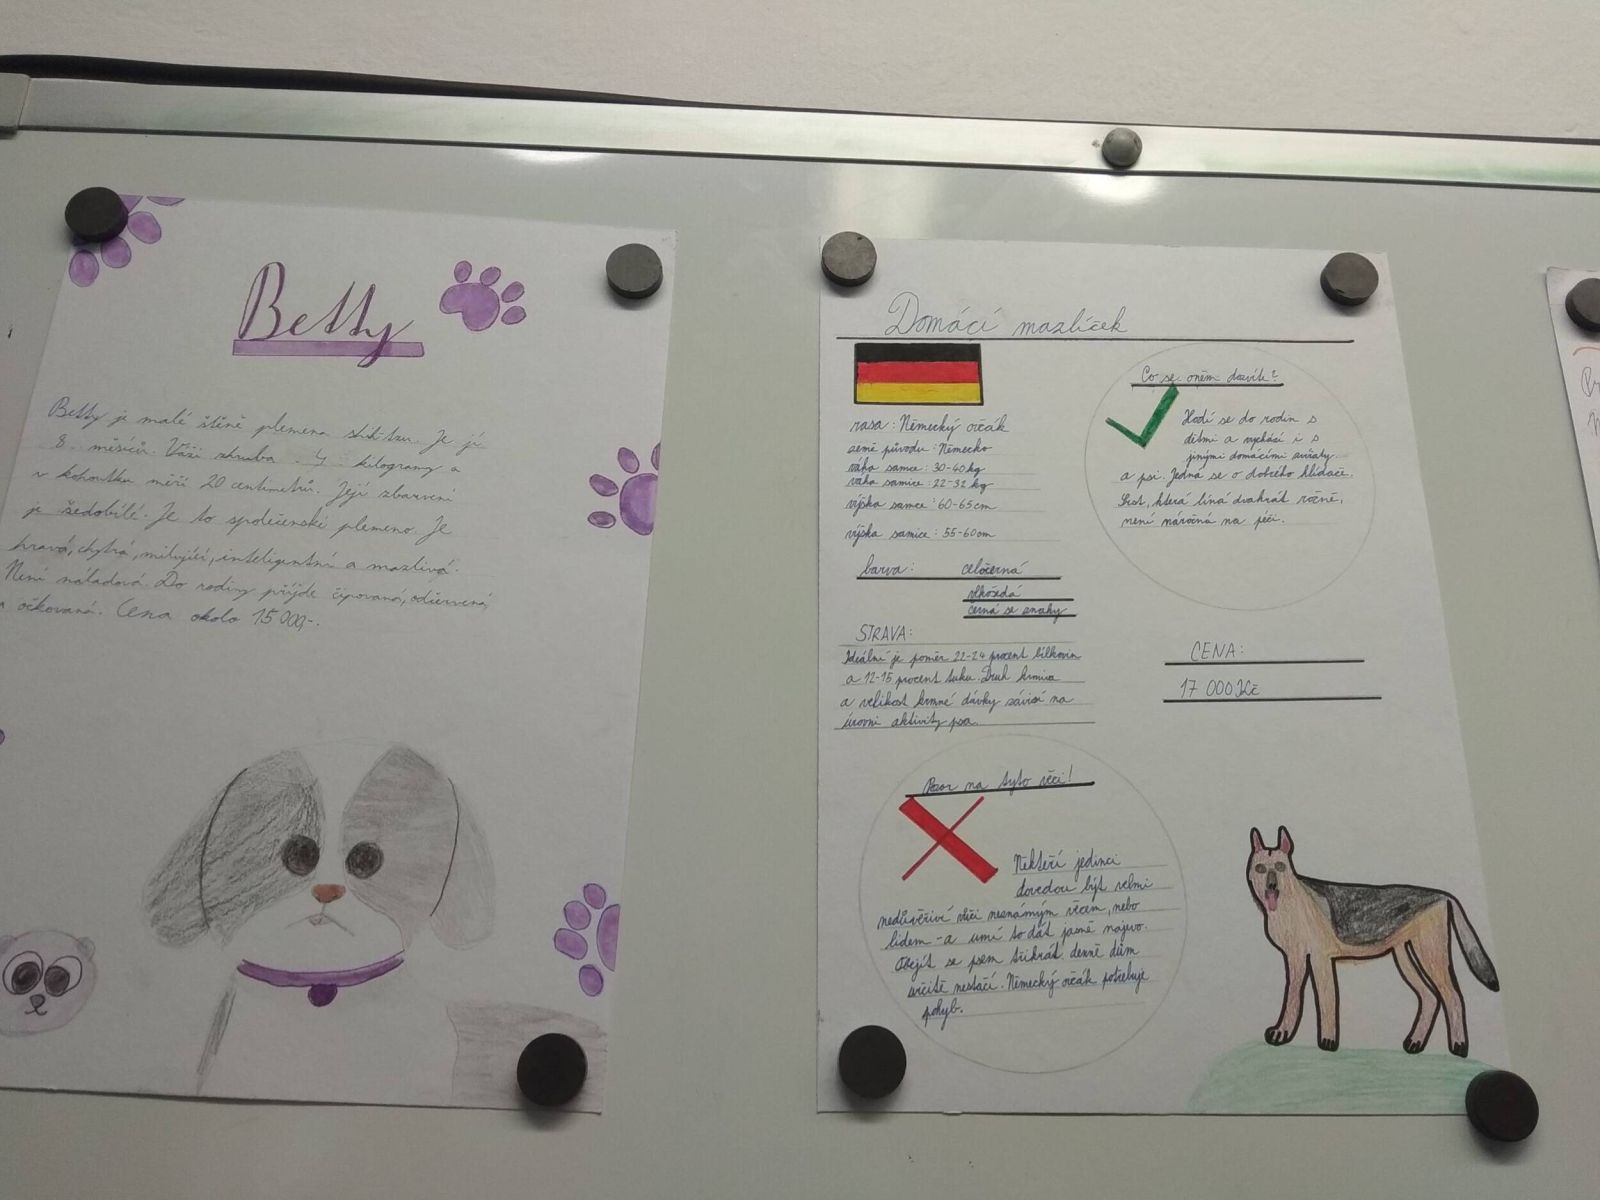 Betty
Betty je malé štěně plemena shih-tzu. Je jí
8 měsíců. Váží zhruba 4 kilogramy a
v kohoutku měří 20 centimetrů. Její zbarvení
je šedobílé. Je to společenské plemeno. Je
hravá, chytrá, milující, inteligentní a mazlivá.
Není náladová. Do rodiny přijde čipovaná, odčervená
a očkovaná. Cena okolo 15 000,-.
Domácí mazlíček
rasa: Německý ovčák
země původu: Německo
váha samce: 30-40 kg
váha samice: 22-32 kg
výška samce: 60-65 cm
výška samice: 55-60 cm
barva: celočerná
vlkošedá
černá se znaky
STRAVA:
Ideální je poměr 22-24 procent bílkovin
a 12-15 procent tuku. Druh krmiva
a velikost krmné dávky závisí na
úrovni aktivity psa.
Co se oněm dozvíte?
Hodí se do rodin s
dětmi a vychází i s
jinými domácími zvířaty
a psi. Jedná se o dobrého hlídače.
Srst, která líná dvakrát ročně,
není náročná na péči.
CENA:
17 000 Kč
Pozor na tyto věci!
Někteří jedinci
dovedou být velmi
nedůvěřiví vůči neznámým věcem, nebo
lidem - a umí to dát jasně najevo.
Obejít se psem třikrát denně dům
určitě nestačí. Německý ovčák potřebuje
pohyb.